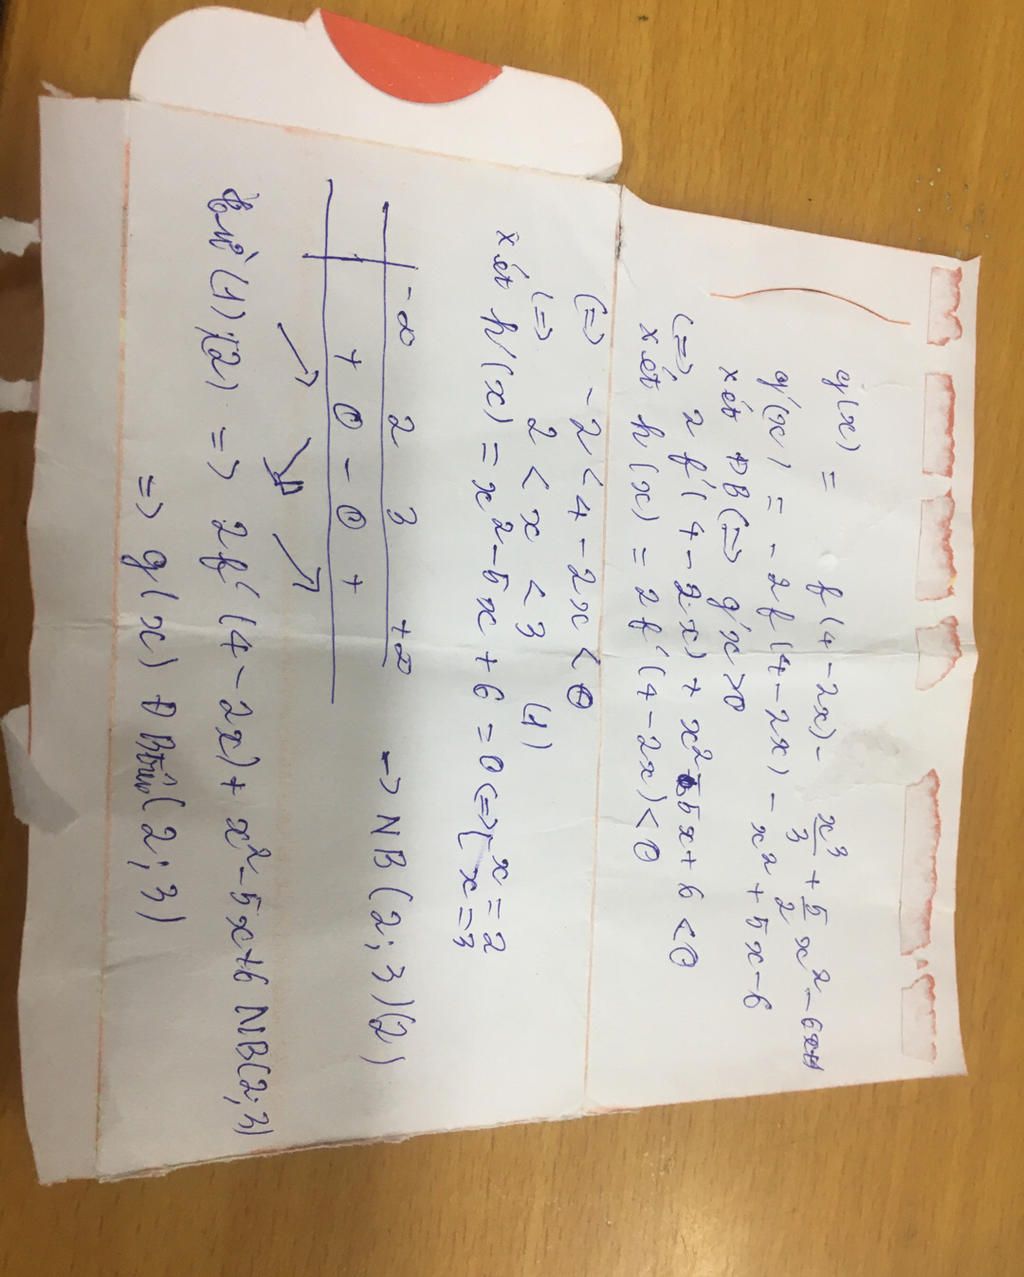 g(x) = f(4-2x) - x³/3 + 5/2 x² - 6x+1
g'(x) = -2f(4-2x) - x² + 5x - 6
xét ĐB (=> g'x>0
(=> 2f'(4-2x) + x² - 5x + 6 < 0
xét h(x) = 2f'(4-2x) < 0
(=> -2 < 4-2x < 0
(=> 2 < x < 3 (1)
xét h'(x) = x² - 5x + 6 = 0 (=> [ x = 2
x = 3
-∞ 2 3 +∞
+ 0 - 0 +
-> NB (2; 3) (2)
từ (1), (2) => 2f'(4-2x) + x² - 5x + 6 NB(2; 3)
=> g(x) ĐB trên (2; 3)